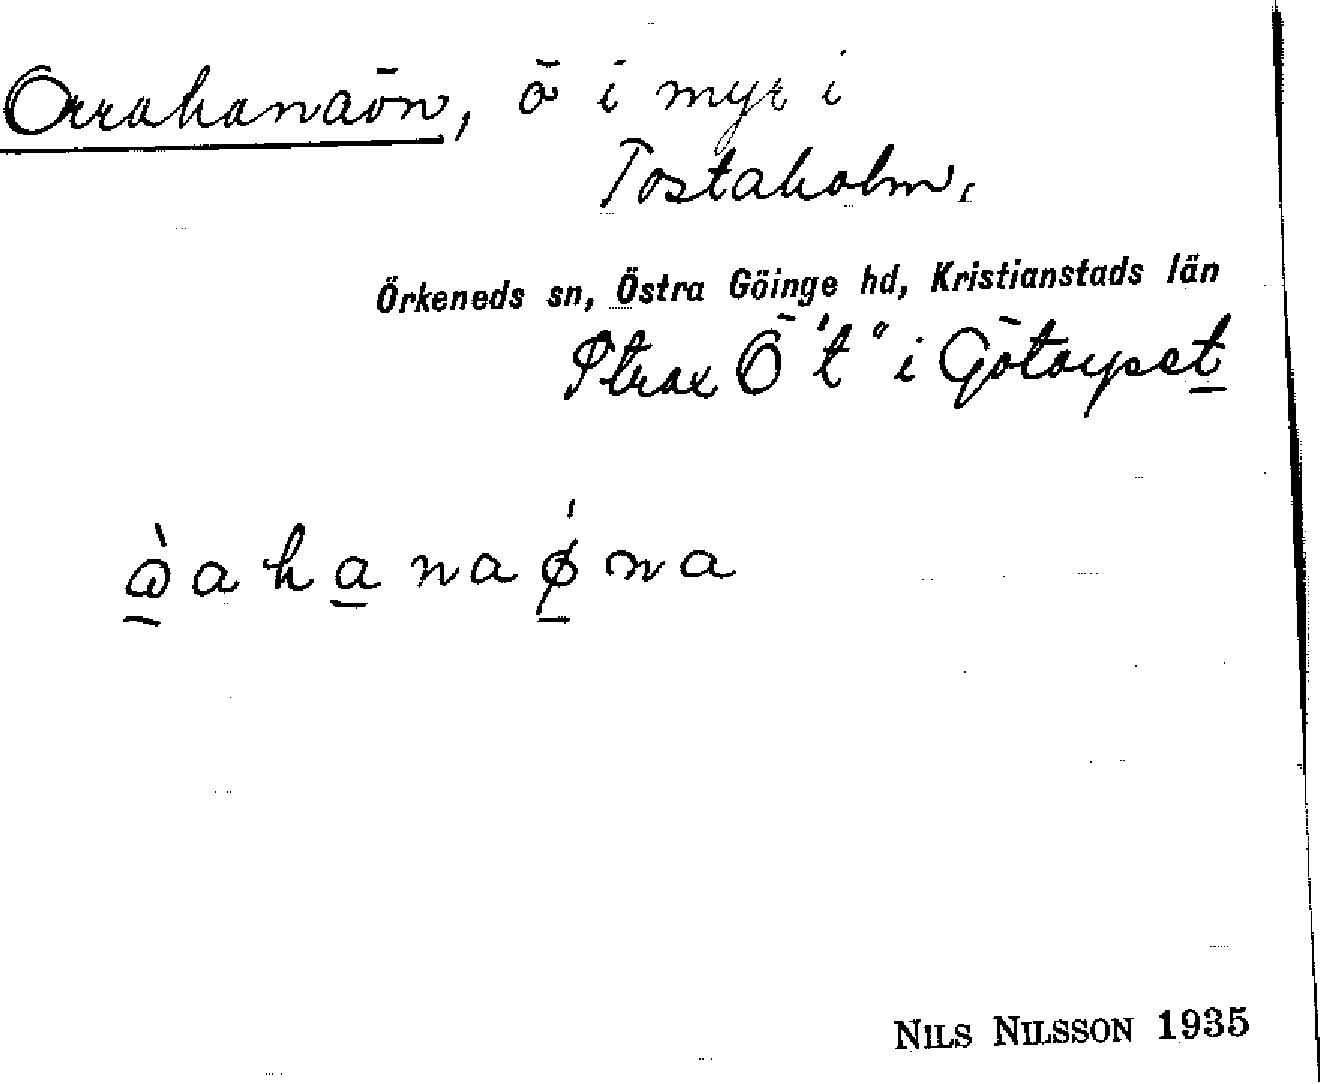 Orrahanaön, ö i myr i
Tostaholm.
Örkeneds sn, Östra Göinge hd, Kristianstads län
Strax Ö "t" i Götarpset
NILS NILSSON 1935